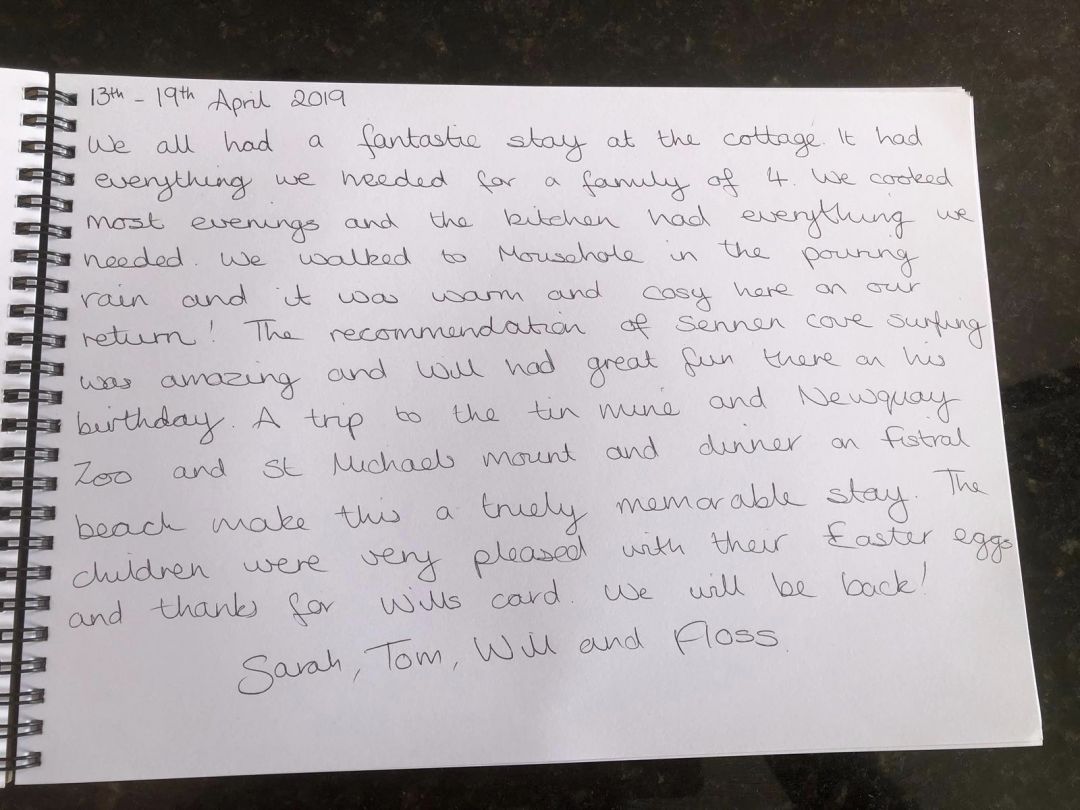 13th - 19th April 2019
We all had a fantastic stay at the cottage. It had
everything we needed for a family of 4. We cooked
most evenings and the kitchen had everything we
needed. We walked to Mousehole in the pouring
rain and it was warm and cosy here on our
return! The recommendation of Sennen cove surfing
was amazing and Will had great fun there on his
birthday. A trip to the tin mine and Newquay
Zoo and St Michaels mount and dinner on fistral
beach make this a truely memorable stay. The
children were very pleased with their Easter eggs
and thanks for Wills card. We will be back!
Sarah, Tom, Will and Floss.